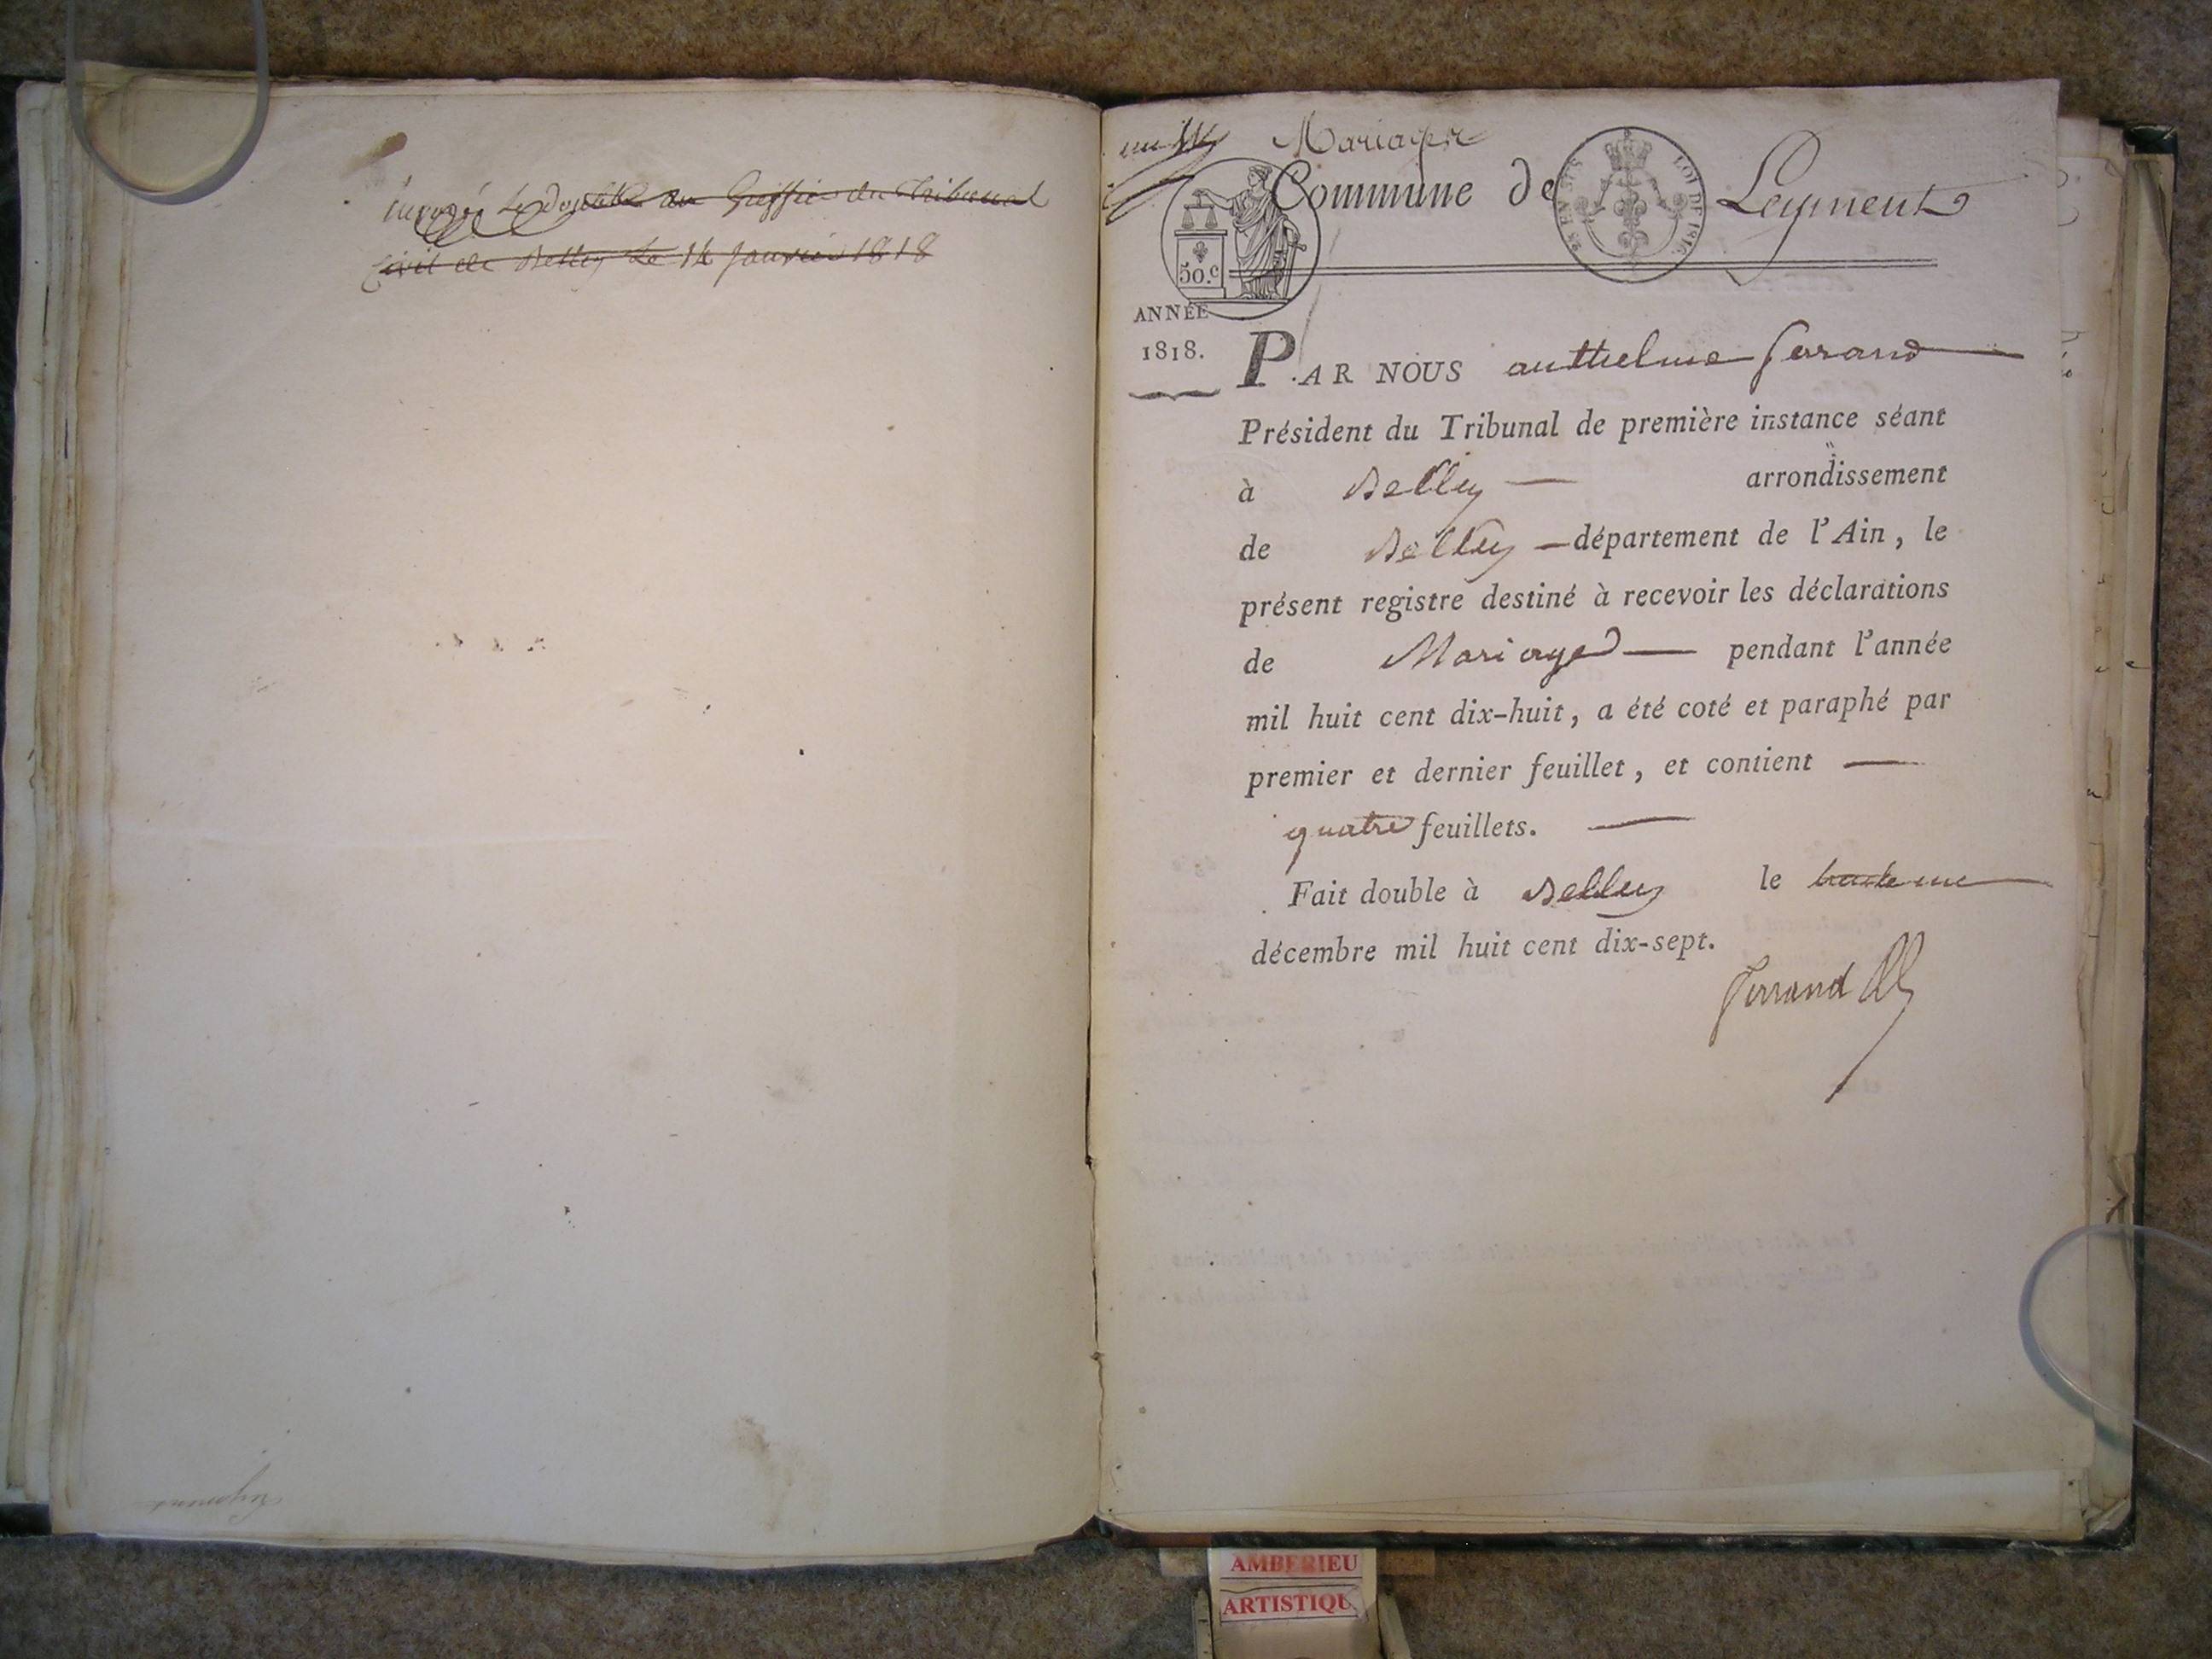 envoyé le double au Greffier du Tribunal
Civil de Belley le 14 Janvier 1818
Mariages
Commune de Leyment
LOI DE 1816
50.c
ANNÉE
1818.
PAR NOUS anthelme ferrand
Président du Tribunal de première instance séant
à Belley arrondissement
de Belley département de l'Ain, le
présent registre destiné à recevoir les déclarations
de Mariage pendant l'année
mil huit cent dix-huit, a été coté et paraphé par
premier et dernier feuillet, et contient
quatre feuillets.
Fait double à Belley le trente une
décembre mil huit cent dix-sept.
ferrand
AMBERIEU
ARTISTIQU